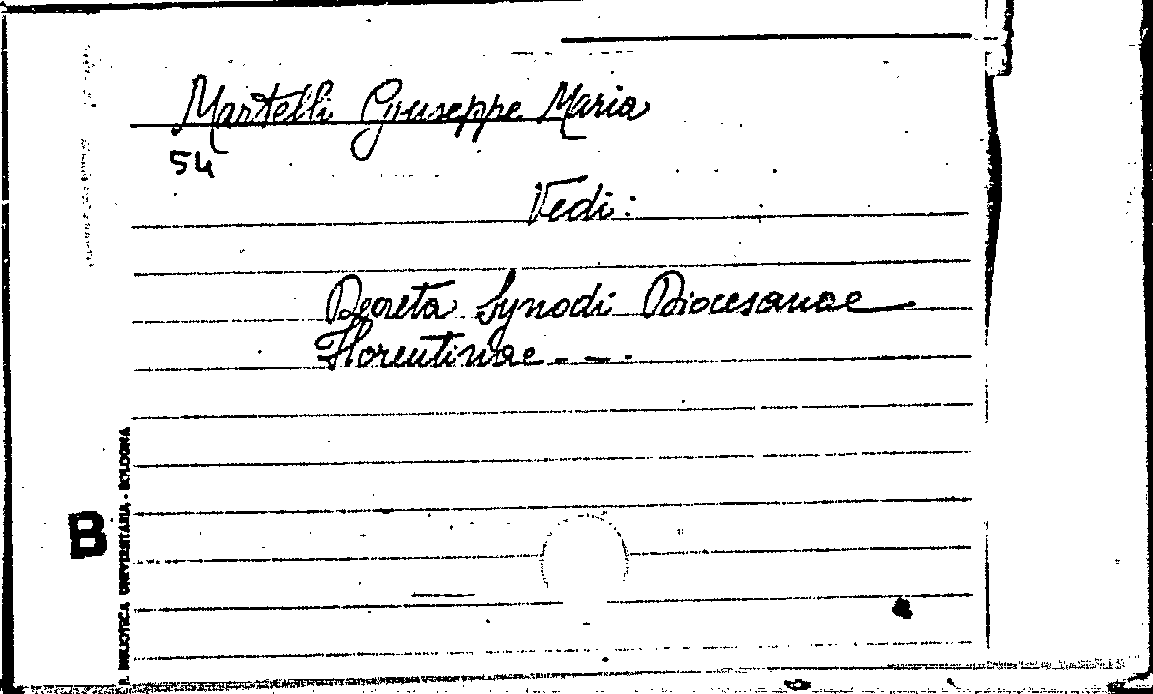 Martelli Giuseppe Maria
54
Vedi:
Decreta Synodi Diocesanae
Florentinae - - -
B
R. BIBLIOTECA UNIVERSITARIA - BOLOGNA